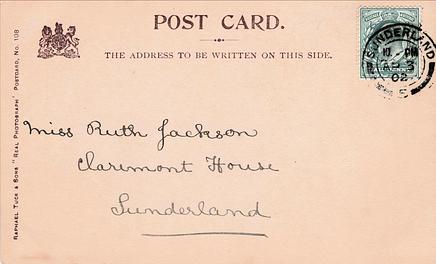 POST CARD.
THE ADDRESS TO BE WRITTEN ON THIS SIDE.
SUNDERLAND
PM
AP 3
02
5
RAPHAEL TUCK & SONS "REAL PHOTOGRAPH" POSTCARD, No. 108
Miss Ruth Jackson
Claremont House
Sunderland